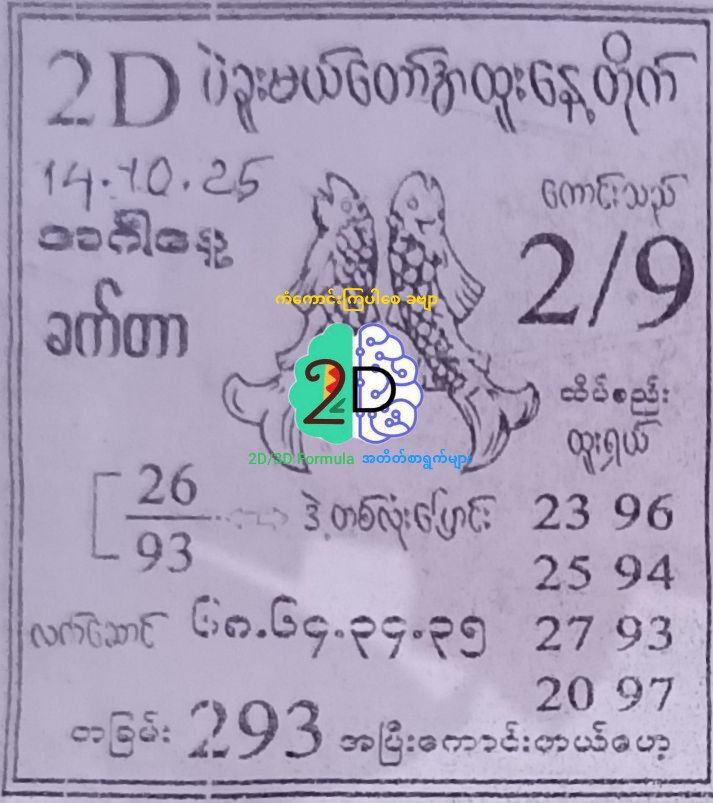 2D ပဲခူးမယ်တော်အာထူးနေ့တိုက်
14.10.25
အင်္ဂါနေ့
ခက်တာ
ကောင်းသည်
2/9
ကံကောင်းကြပါစေ ခဗျာ
2D
2D/3D Formula အတိတ်စာရွက်များ
ထိပ်စည်း
ထူးရှယ်
26
93
ဒဲ့ တစ်လုံးပြောင်း
23 96
25 94
27 93
20 97
လက်ဆောင် ၆၈.၆၄.၃၄.၃၅
တခြမ်း 293 အပြီးကောင်းတယ်ဟေ့